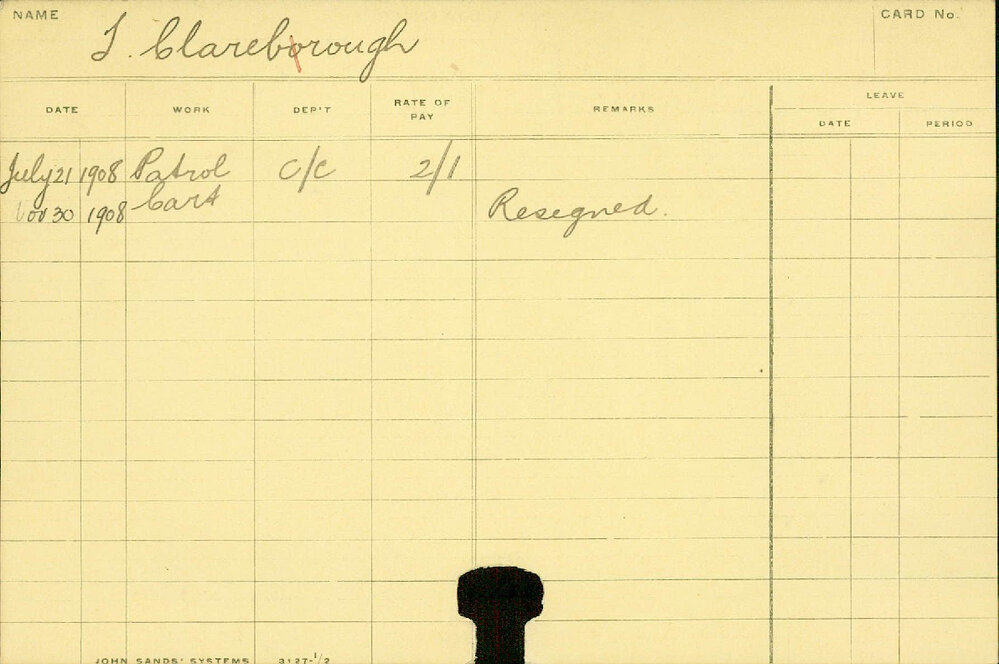 NAME
CARD No.
T. Clareborough
DATE WORK DEP'T RATE OF PAY REMARKS LEAVE
DATE PERIOD
July 21 1908 Patrol C/C 2/1
Cart
Nov 30 1908 Resigned.
JOHN SANDS' SYSTEMS 3127-1/2